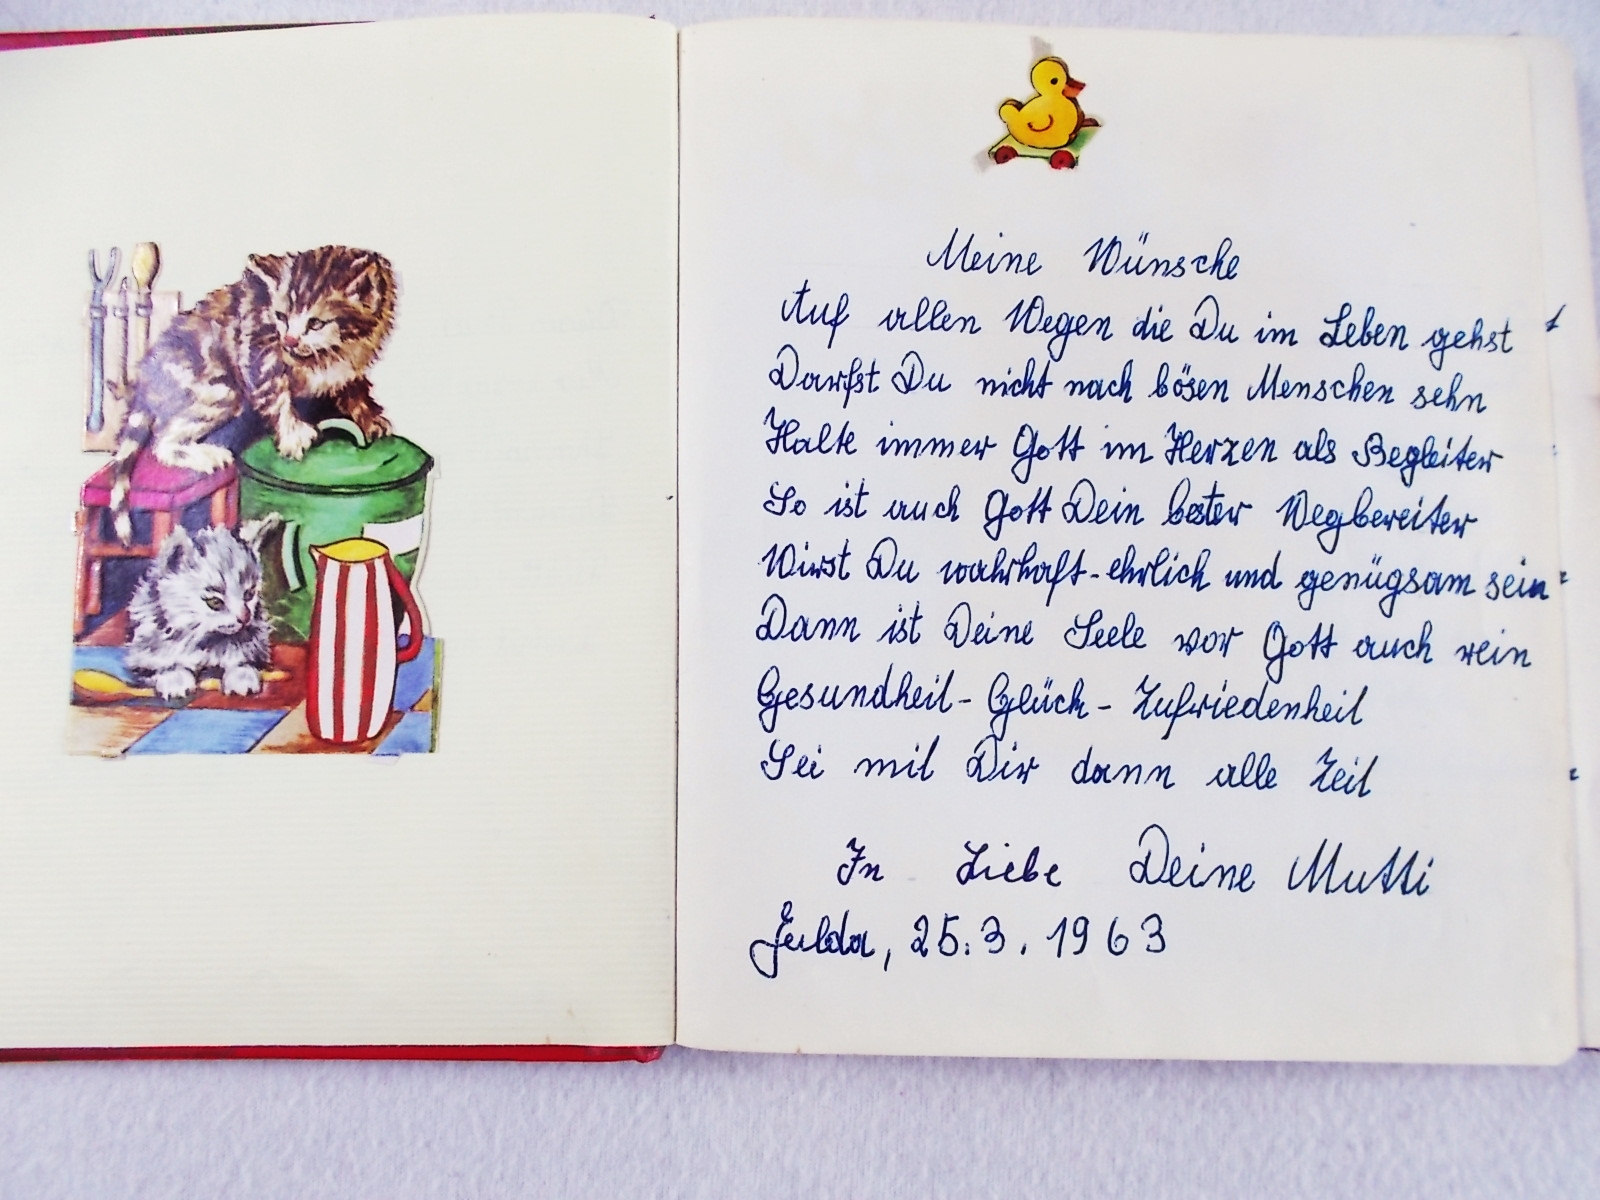 Meine Wünsche
Auf allen Wegen die Du im Leben gehst
Darfst Du nicht nach bösen Menschen sehn
Halte immer Gott im Herzen als Begleiter
So ist auch Gott Dein bester Wegbereiter
Wirst Du wahrhaft-ehrlich und genügsam sein
Dann ist Deine Seele vor Gott auch rein
Gesundheit - Glück - Zufriedenheit
Sei mit Dir dann alle Zeit
In Liebe Deine Mutti
Fulda, 25.3.1963